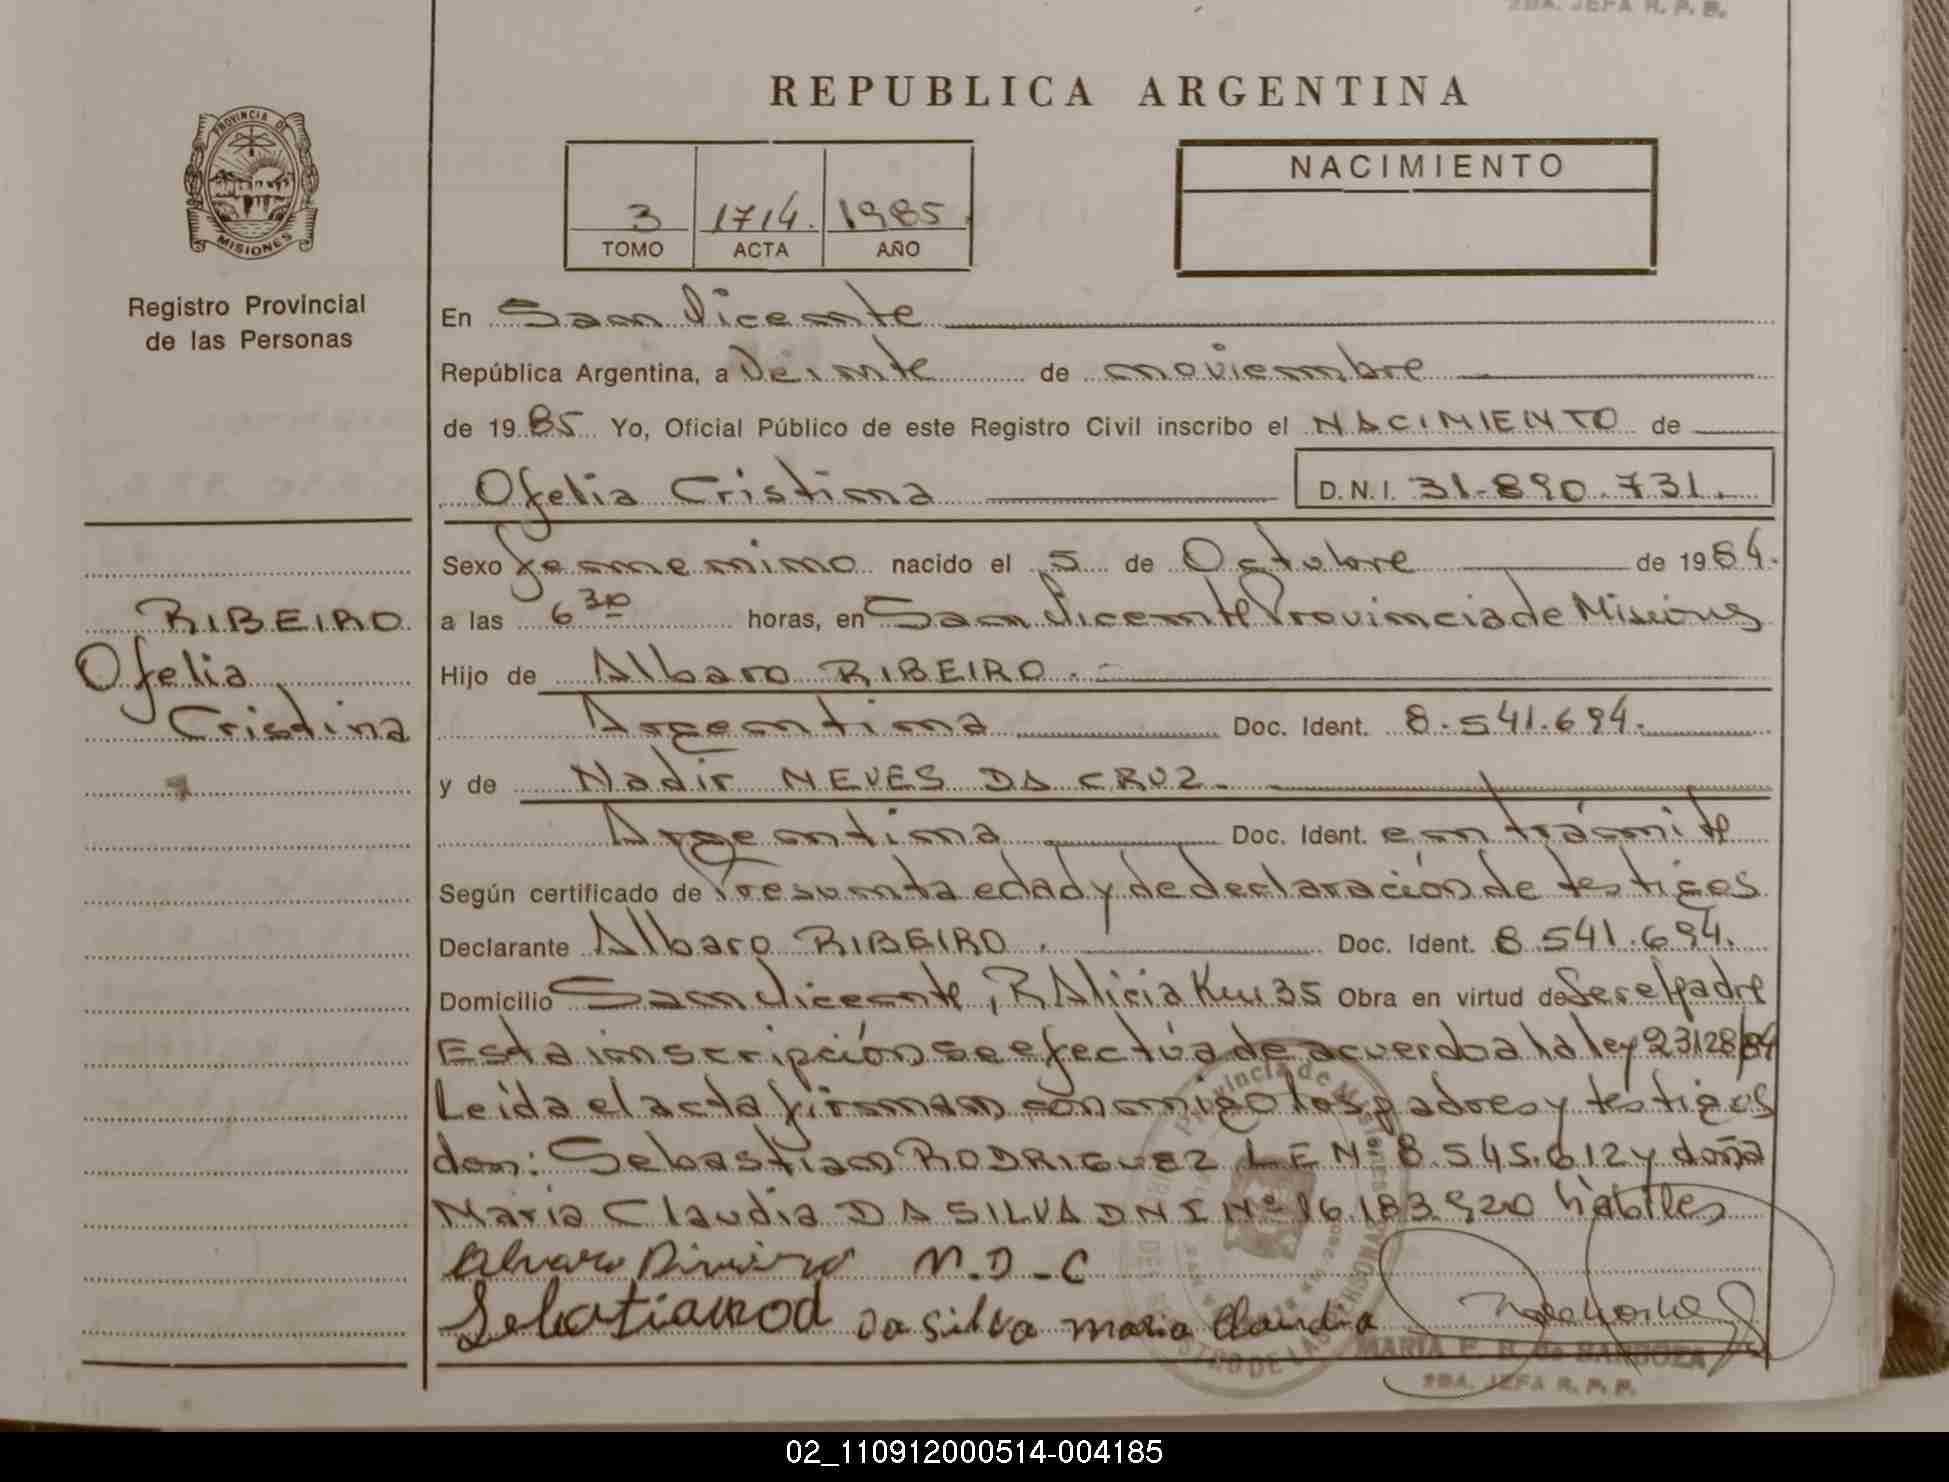 2DA. JEFA R. P. P.
REPUBLICA ARGENTINA
PROVINCIA DE
MISIONES
Registro Provincial
de las Personas
3 1714. 1985
TOMO ACTA AÑO
NACIMIENTO
En San Vicente
República Argentina, a Veinte de noviembre
de 1985 Yo, Oficial Público de este Registro Civil inscribo el NACIMIENTO de
Ofelia Cristina D.N.I. 31.890.731.
RIBEIRO
Ofelia
Cristina
Sexo femenino nacido el 5 de Octubre de 1984.
a las 6 30 horas, en San Vicente Provincia de Misiones
Hijo de Albaro RIBEIRO.
Argentina Doc. Ident. 8.541.694.
y de Nadir NEVES DA CRUZ.
Argentina Doc. Ident. en trámite
Según certificado de Presunta edad y de declaración de testigos
Declarante Albaro RIBEIRO. Doc. Ident. 8 541.694.
Domicilio San Vicente, R Alicia Km 35 Obra en virtud de Ser el padre
Esta inscripción se efectúa de acuerdo a la ley 23128/84
Leída el acta firman conmigo los padres y testigos
don: Sebastian RODRIGUEZ L E Nº 8.545.612 y doña
Maria Claudia DA SILVA D N I Nº 16.183.920 hábiles
Alvaro Riveiro N.D-C
Sebatian Rod da silva maria Claudia
MARIA E. B. de BARBOZA
2DA. JEFA R. P. P.
Provincia de Misiones
02_110912000514-004185